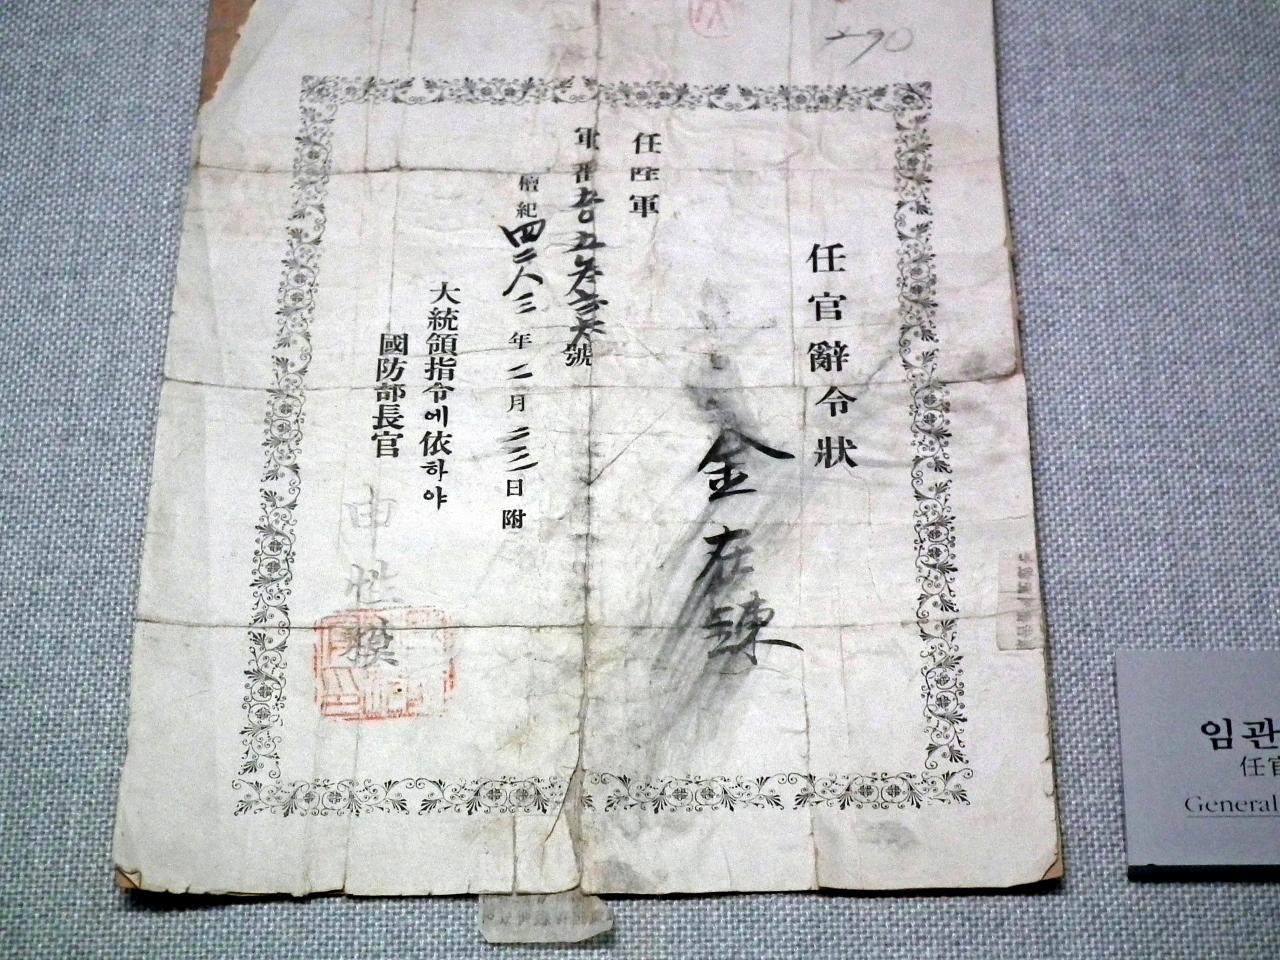 290
任官辭令狀
金在鍊
任陸軍
軍番
號
檀紀四二八三年二月二三日附
大統領指令에依하야
國防部長官
申性模
임관
任官
General